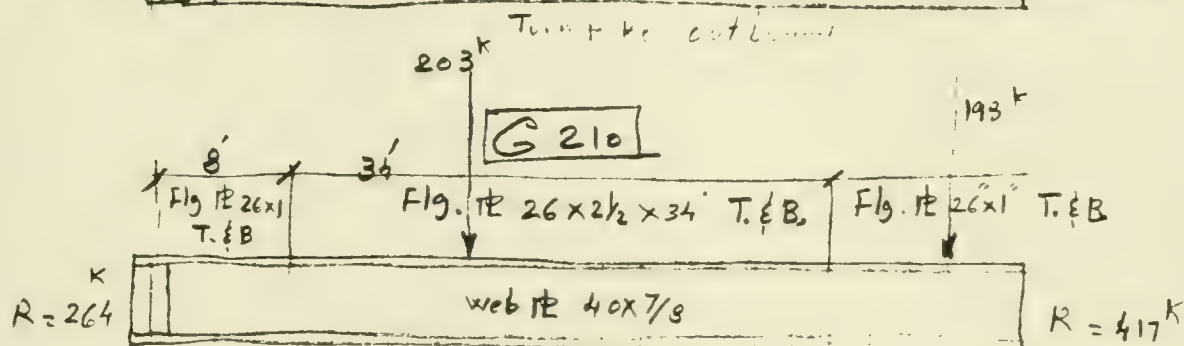 203ᴷ
193ᴷ
G 210
8'
Flg ⅊ 26x1
T. & B
Flg. ⅊ 26 x 2½ x 34' T. & B.
Flg. ⅊ 26"x1" T. & B
R = 264ᴷ
web ⅊ 40x7/8
R = 417ᴷ